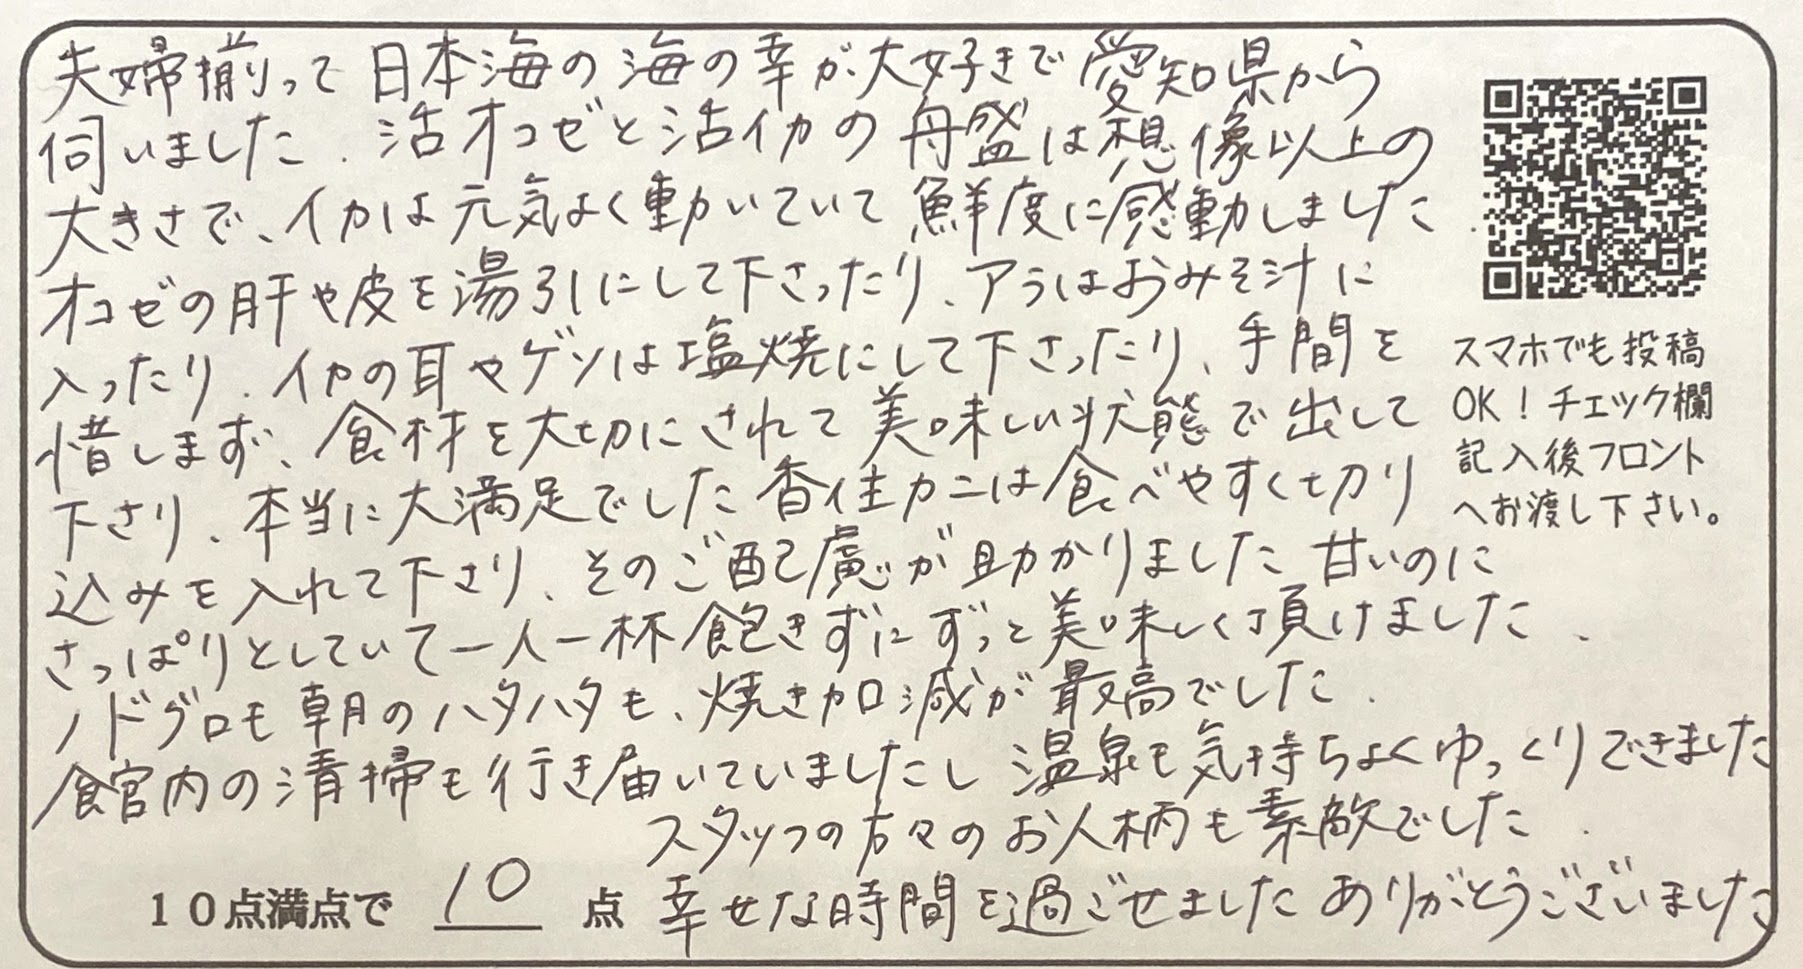 夫婦揃って日本海の海の幸が大好きで愛知県から
伺いました。活オコゼと活イカの舟盛は想像以上の
大きさで、イカは元気よく動いていて鮮度に感動しました。
オコゼの肝や皮を湯引にして下さったり、アラはおみそ汁に
入ったり、イカの耳やゲソは塩焼にして下さったり、手間を
惜しまず、食材を大切にされて美味しい状態で出して
下さり、本当に大満足でした香住カニは食べやすく切り
込みを入れて下さり、そのご配慮が助かりました甘いのに
さっぱりとしていて一人一杯飽きずにずっと美味しく頂けました、
ノドグロも朝のハタハタも、焼き加減が最高でした.
館内の清掃も行き届いていましたし温泉も気持ちよくゆっくりできました
スタッフの方々のお人柄も素敵でした.
10点満点で 10 点 幸せな時間を過ごせましたありがとうございました
スマホでも投稿
OK！チェック欄
記入後フロント
へお渡し下さい。